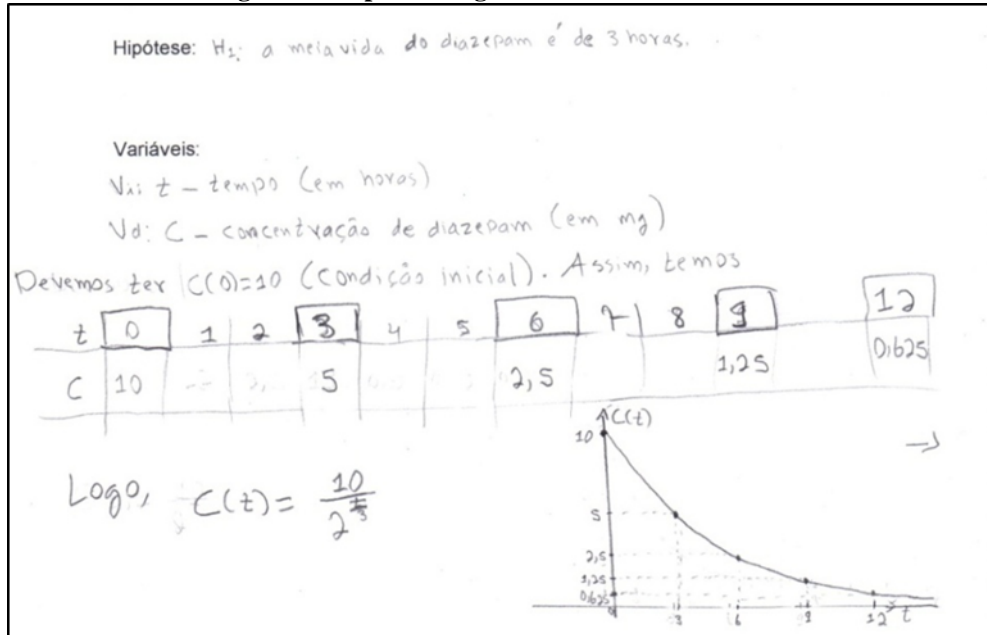 Hipótese: H1: a meia vida do diazepam é de 3 horas.
Variáveis:
Vi: t – tempo (em horas)
Vd: C – concentração de diazepam (em mg)
Devemos ter C(0)=10 (condição inicial). Assim, temos
t 0 1 2 3 4 5 6 7 8 9 12
C 10 5 2,5 1,25 0,625
Logo, C(t) = 10 / 2^(t/3)
C(t)
10
5
2,5
1,25
0,625
0 3 6 9 12 t